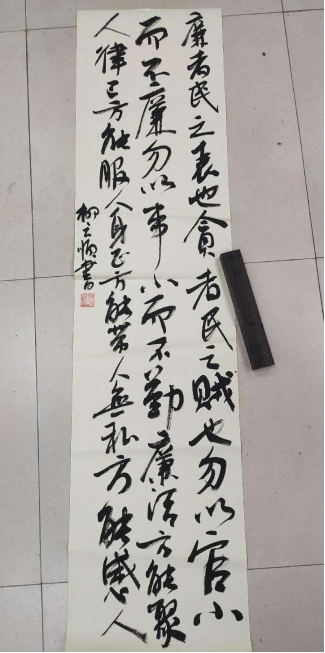 廉者民之表也貪者民之賊也勿以官小
而不廉勿以事小而不勤廉洁方能聚
人律己方能服人身正方能帶人無私方能感人
書